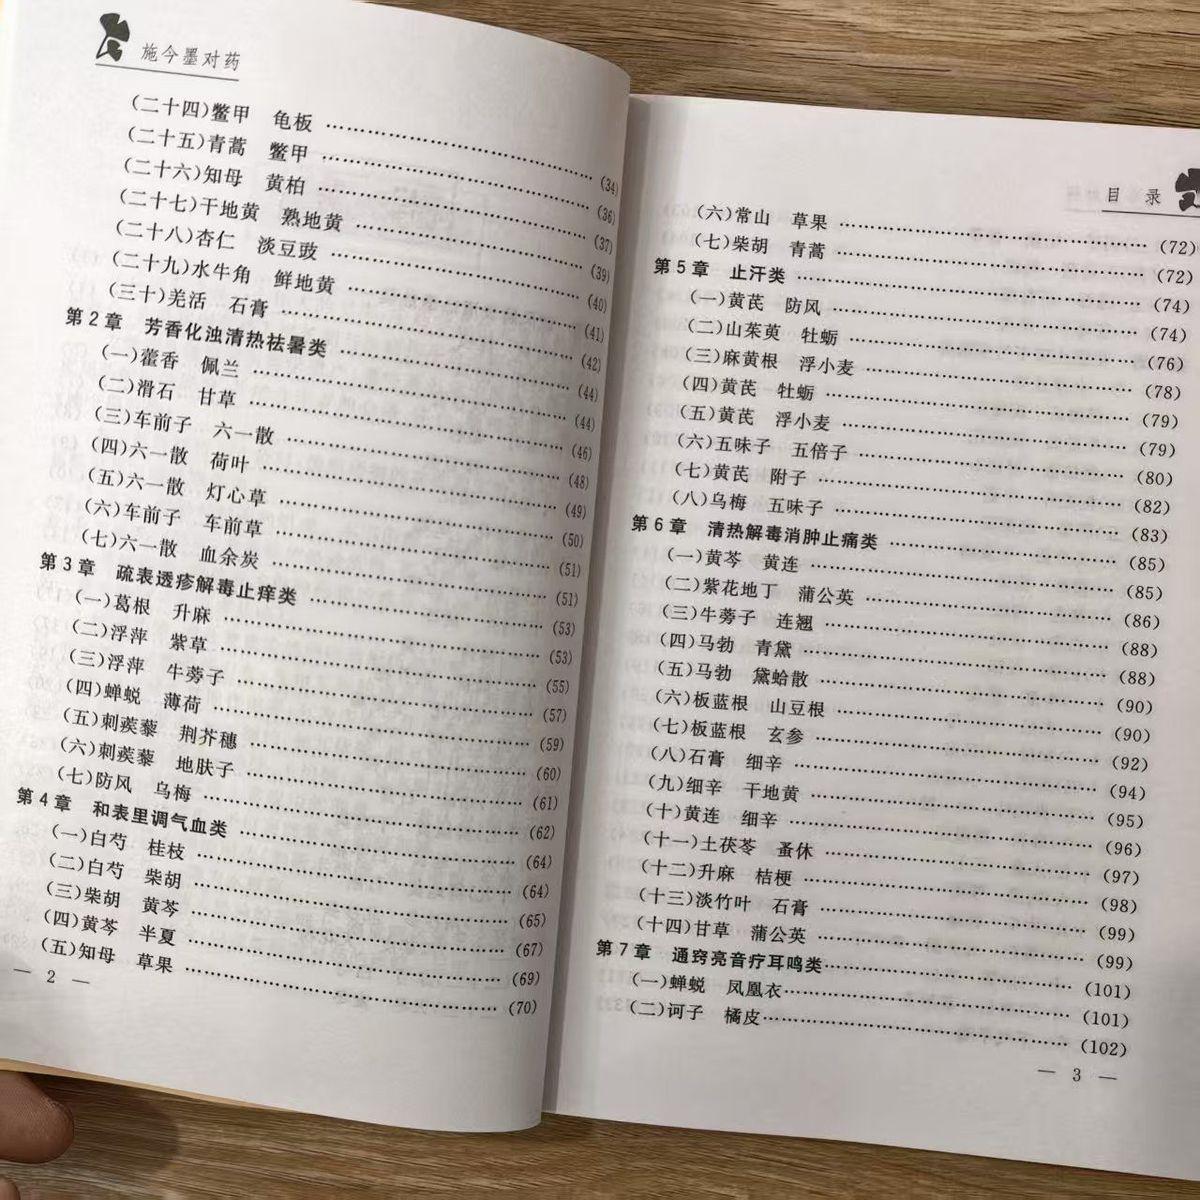 施今墨对药
(二十四)鳖甲 龟板 ……………………………… (34)
(二十五)青蒿 鳖甲 ……………………………… (36)
(二十六)知母 黄柏 ……………………………… (37)
(二十七)干地黄 熟地黄 ……………………………… (39)
(二十八)杏仁 淡豆豉 ……………………………… (40)
(二十九)水牛角 鲜地黄 ……………………………… (41)
(三十)羌活 石膏 ……………………………… (42)
第2章 芳香化浊清热祛暑类 ……………………………… (44)
(一)藿香 佩兰 ……………………………… (44)
(二)滑石 甘草 ……………………………… (46)
(三)车前子 六一散 ……………………………… (48)
(四)六一散 荷叶 ……………………………… (49)
(五)六一散 灯心草 ……………………………… (50)
(六)车前子 车前草 ……………………………… (51)
(七)六一散 血余炭 ……………………………… (51)
第3章 疏表透疹解毒止痒类 ……………………………… (53)
(一)葛根 升麻 ……………………………… (53)
(二)浮萍 紫草 ……………………………… (55)
(三)浮萍 牛蒡子 ……………………………… (57)
(四)蝉蜕 薄荷 ……………………………… (59)
(五)刺蒺藜 荆芥穗 ……………………………… (60)
(六)刺蒺藜 地肤子 ……………………………… (61)
(七)防风 乌梅 ……………………………… (62)
第4章 和表里调气血类 ……………………………… (64)
(一)白芍 桂枝 ……………………………… (64)
(二)白芍 柴胡 ……………………………… (65)
(三)柴胡 黄芩 ……………………………… (67)
(四)黄芩 半夏 ……………………………… (69)
(五)知母 草果 ……………………………… (70)
— 2 —
目 录
(六)常山 草果 ……………………………… (72)
(七)柴胡 青蒿 ……………………………… (72)
第5章 止汗类 ……………………………… (74)
(一)黄芪 防风 ……………………………… (74)
(二)山茱萸 牡蛎 ……………………………… (76)
(三)麻黄根 浮小麦 ……………………………… (78)
(四)黄芪 牡蛎 ……………………………… (79)
(五)黄芪 浮小麦 ……………………………… (79)
(六)五味子 五倍子 ……………………………… (80)
(七)黄芪 附子 ……………………………… (82)
(八)乌梅 五味子 ……………………………… (83)
第6章 清热解毒消肿止痛类 ……………………………… (85)
(一)黄芩 黄连 ……………………………… (85)
(二)紫花地丁 蒲公英 ……………………………… (86)
(三)牛蒡子 连翘 ……………………………… (88)
(四)马勃 青黛 ……………………………… (88)
(五)马勃 黛蛤散 ……………………………… (90)
(六)板蓝根 山豆根 ……………………………… (90)
(七)板蓝根 玄参 ……………………………… (92)
(八)石膏 细辛 ……………………………… (94)
(九)细辛 干地黄 ……………………………… (95)
(十)黄连 细辛 ……………………………… (96)
(十一)土茯苓 蚤休 ……………………………… (97)
(十二)升麻 桔梗 ……………………………… (98)
(十三)淡竹叶 石膏 ……………………………… (99)
(十四)甘草 蒲公英 ……………………………… (99)
第7章 通窍亮音疗耳鸣类 ……………………………… (101)
(一)蝉蜕 凤凰衣 ……………………………… (101)
(二)诃子 橘皮 ……………………………… (102)
— 3 —